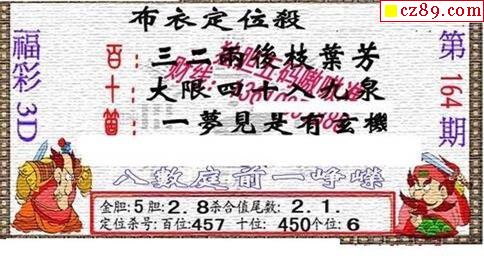 cz89.com
布衣定位殺
福彩3D
第164期
百:三二雨後枝葉芳
十:大限四十入九泉
箇:一夢見是有玄機
八數庭前一崢嶸
金胆:5胆:2.8杀合值尾数:2.1.
定位杀号:百位:457 十位:450个位:6